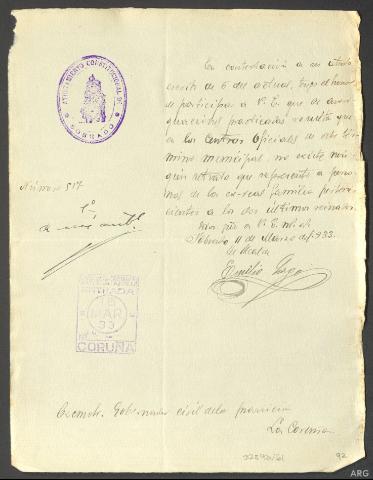 AYUNTAMIENTO CONSTITUCIONAL DE
SOBRADO
En contestación a su atento
escrito de 6 del actual, tengo el honor
de participar a V. E. que de averi
guaciones practicadas resulta que
en los Centros Oficiales de este tér
mino municipal, no existe nin
gún retrato que represente a perso
nas de la ex-real familia pertene
cientes a los dos últimos reinados
Sobrado 11 de Marzo de 1.933.
El Alcalde
Emilio
Número 517
ENTRADA
18
MAR
33
CORUÑA
Excmo. Sr. Gobernador civil de la provincia
La Coruña
92
ARG